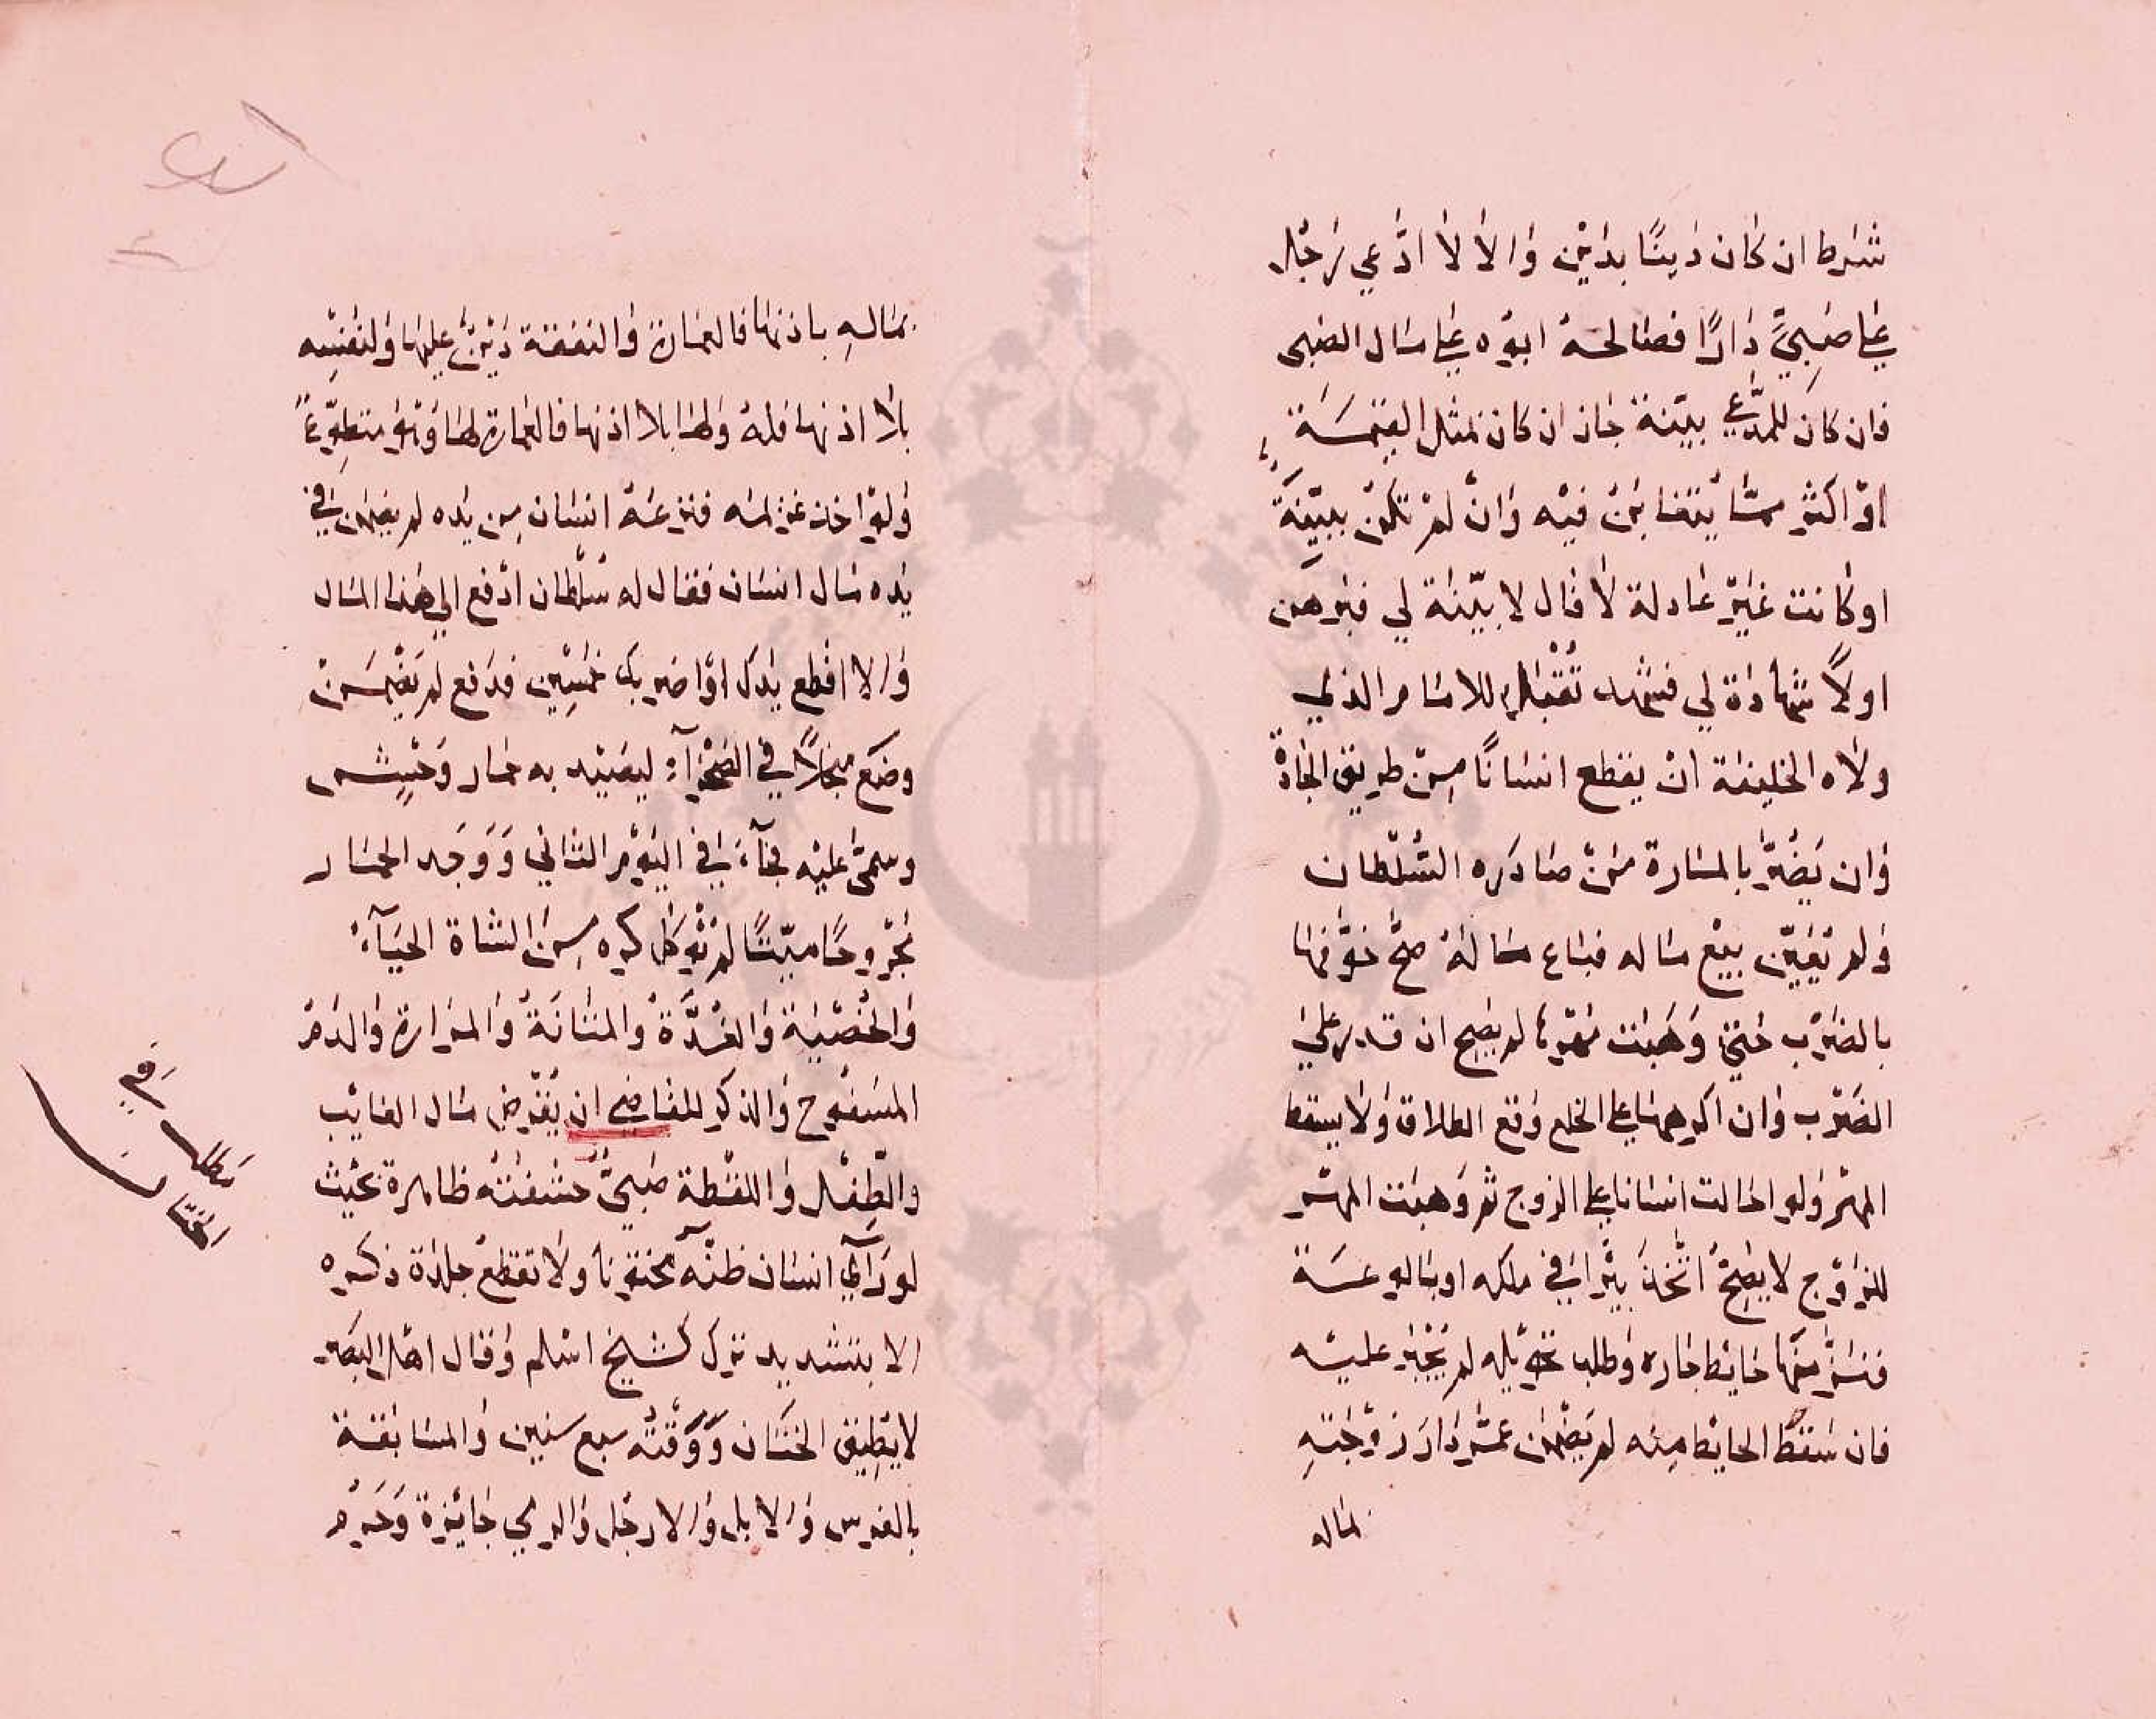 شرط ان كان دينا بدين والا لا ادعي رجل
علي صبي دارا فصالحه ابوه علي مال الصبي
فان كان للمدعي بينة جاز ان كان بمثل القيمة
او اكثر مما يتغابن فيه وان لم تكن ببينة
او كانت غير عادلة لا قال لا بينة لي فبرهن
اولا شهادة لي فشهد تقبل للامام الذي
ولاه الخليفة ان يقطع انسانا من طريق الجادة
وان يضر بالمارة من صادره السلطان
ولم يعين بيع ماله فباع ماله صح خوفها
بالضرب حتي وهبت مهرها لم يصح ان قدر علي
الضرب وان اكرهها علي الخلع وقع الطلاق ولا يسقط
المهر ولو احالت انسانا علي الزوج ثم وهبت المهر
للزوج لا يصح اتخذ بيرا في ملكه او بالوعة
فنز منها حايط جاره وطلب تحويله لم يجبر عليه
فان سقط الحايط منه لم يضمن عمر دار زوجته
بماله
بماله باذنها فالعمارة والنفقة دين عليها ولنفسه
بلا اذنها فله ولها بلا اذنها فالعمارة لها وهو متطوع
ولو اخذ غريمه فنزعه انسان من يده لم يضمن في
يده مال انسان فقال له سلطان ادفع الي هذا المال
والا اقطع يدك او اضربك خمسين فدفع لم يضمن
وضع منجلا في الصحراء ليصيد به حمار وحش
وسمي عليه فجاء في اليوم الثاني ووجد الحمار
مجروحا ميتا لم يوكل كره من الشاة الحياء
والخصية والغدة والمثانة والمرارة والدم
المسفوح والذكر للقاضي ان يقرض مال الغايب
والطفل واللقطة صبي حشفته ظاهرة بحيث
لو رآي انسان ظنه مختونا ولا تقطع جلدة ذكره
الا بتشديد ترك كشيخ اسلم وقال اهل البصر
لا يطيق الختان ووقته سبع سنين والمسابقة
بالفرس والابل والارجل والرمي جايزة وحرم
مطلب في
الختان